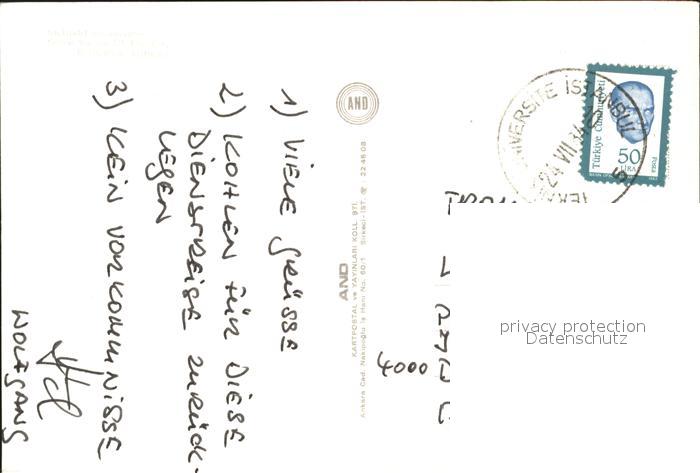 1) VIELE GRÜSSE
2) KOHLEN FÜR DIESE
DIENSTREISE ZURÜCK-
LEGEN
3) KEIN VORKOMMNISSE
WOLFGANG
AND
AND
KARTPOSTAL ve YAYINLARI KOLL. ŞTİ.
Ankara Cad. Nakipoğlu İş Hanı No. 60/1 Sirkeci-İST. ☏ 22 46 08
ÜNİVERSİTE İSTANBUL
24 VII 84
Türkiye Cumhuriyeti
50
LİRA
Posta
4000
privacy protection
Datenschutz